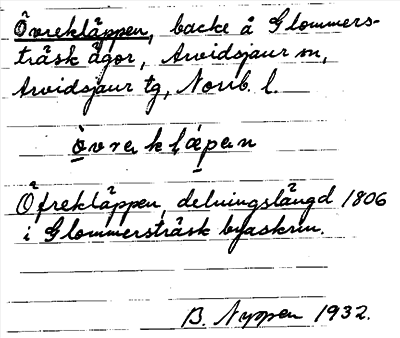 Övrekläppen, backe å Glommers-
träsk ägor, Arvidsjaur sn,
Arvidsjaur tg, Norrb. l.
òvrəklǽpən
Öfrekläppen, delningslängd 1806
i Glommersträsk byaskrin.
B. Nyppen 1932.